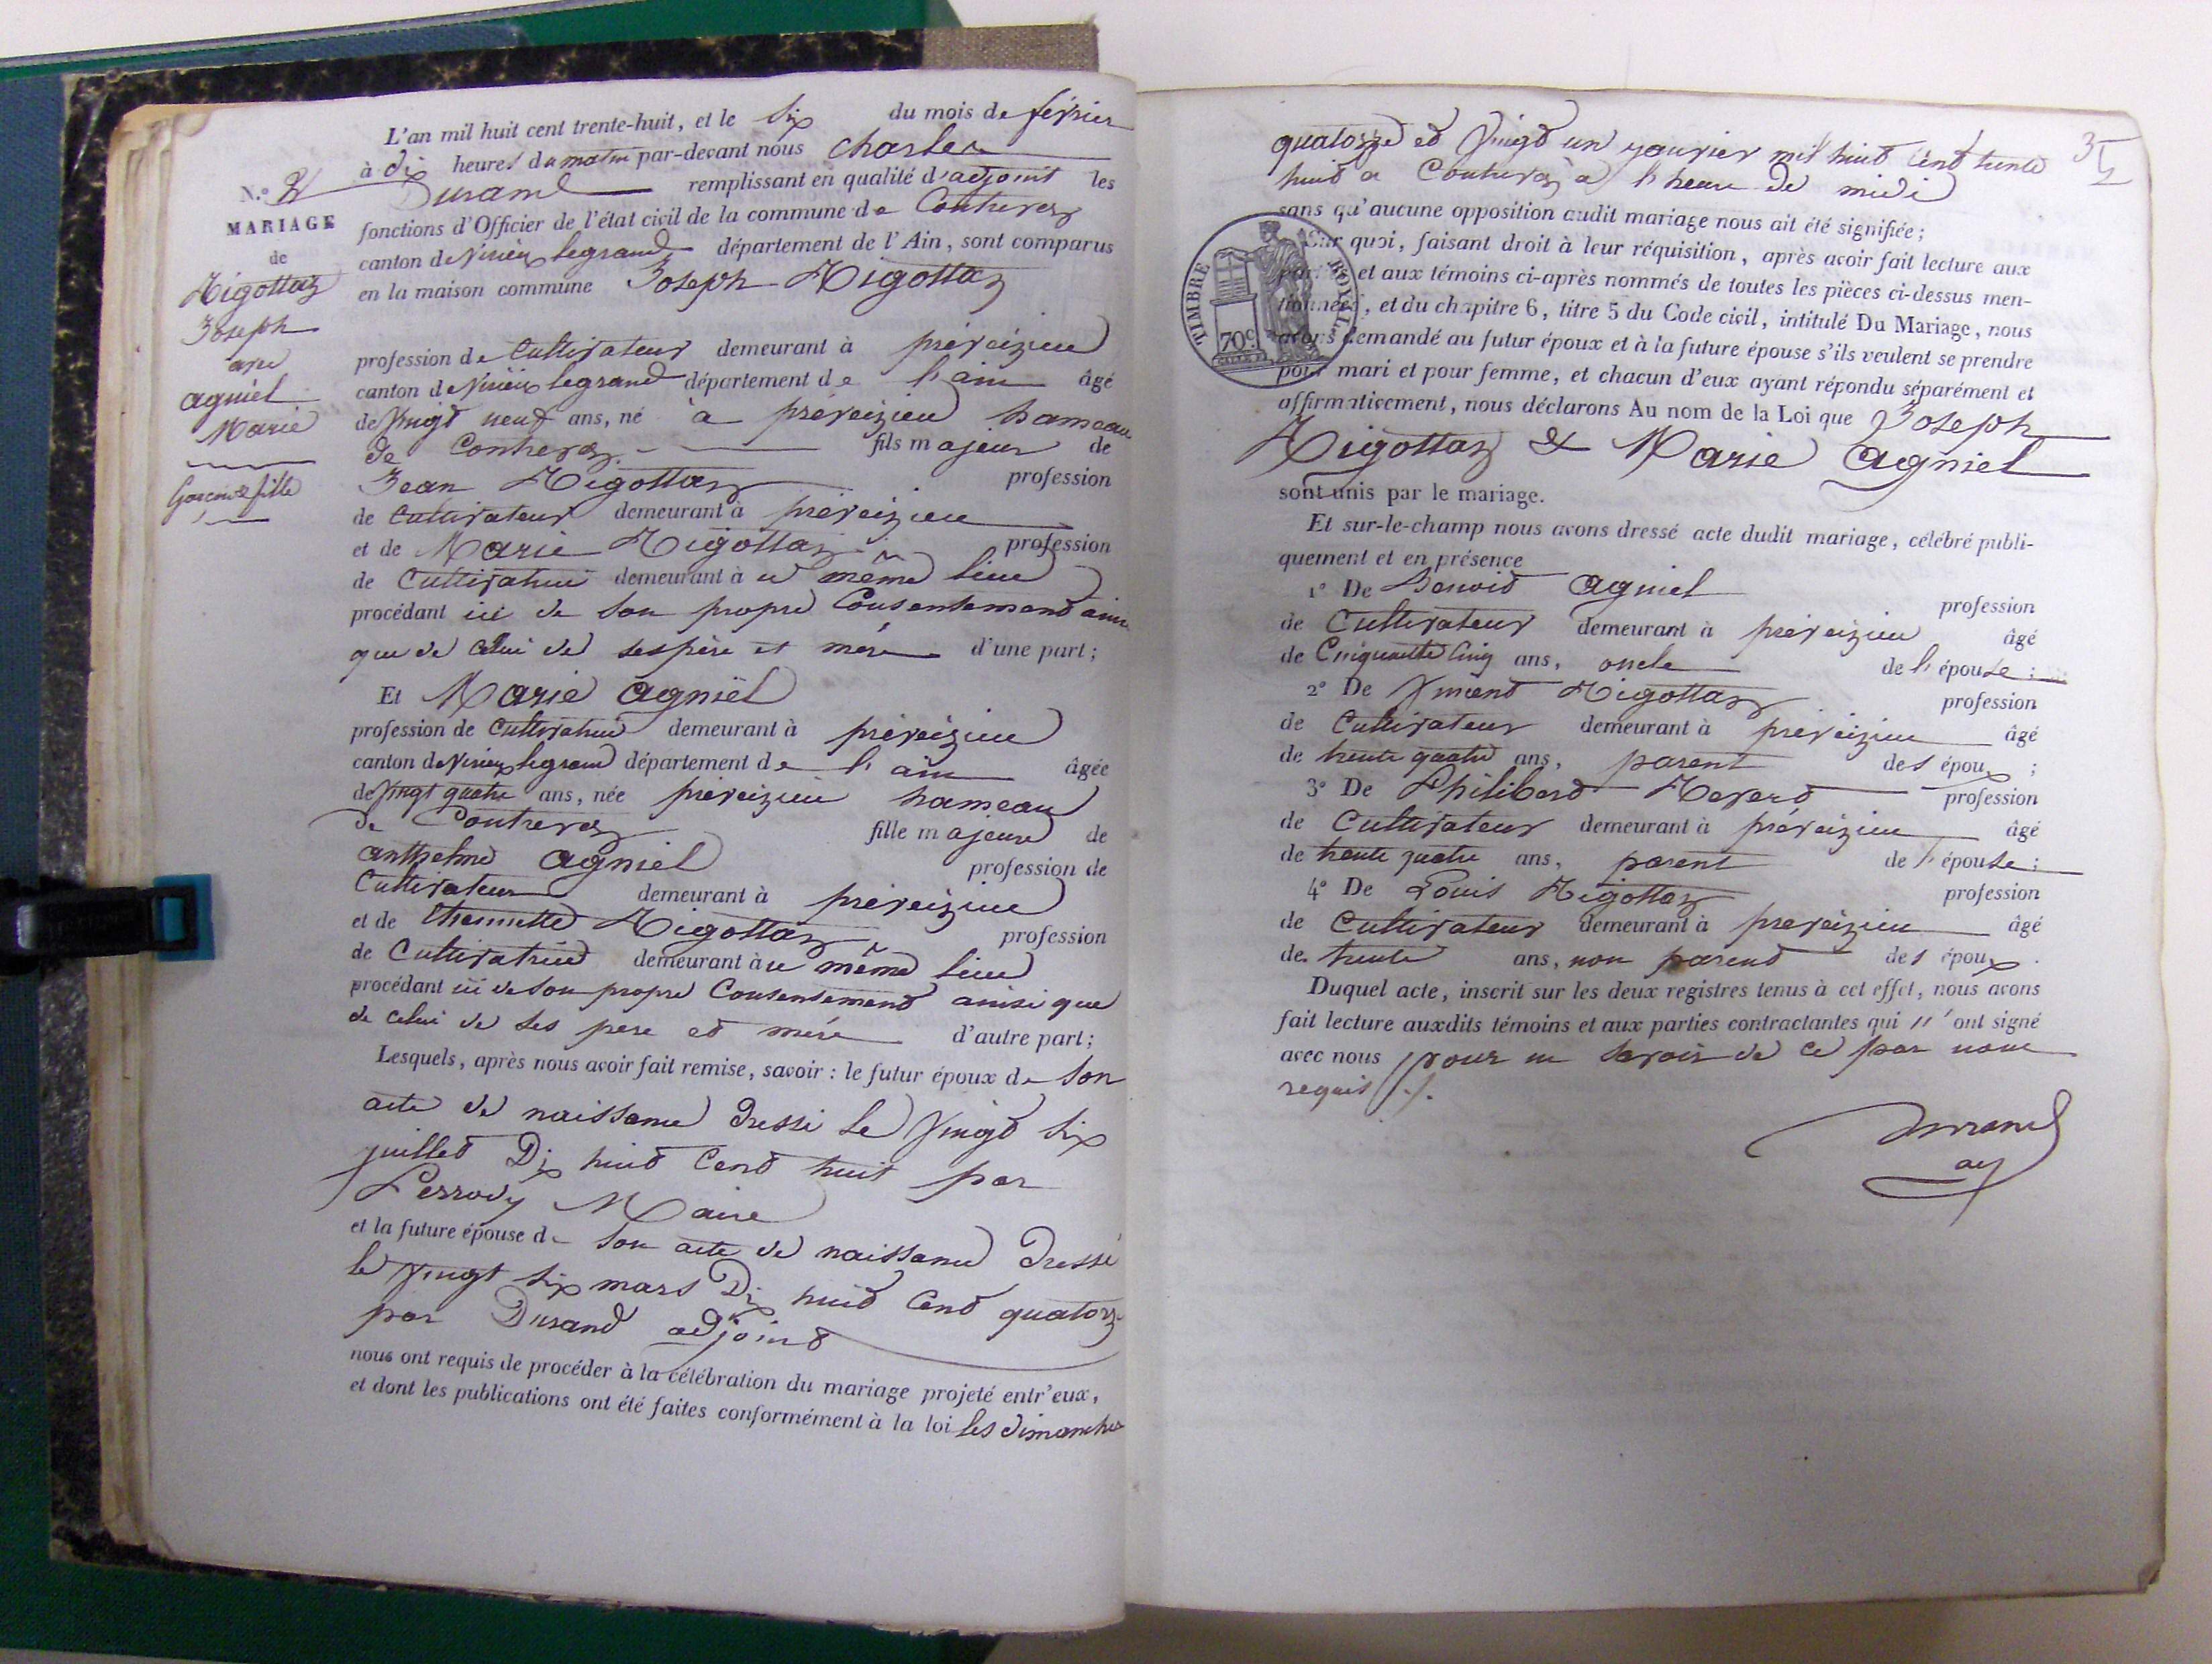 L'an mil huit cent trente-huit, et le six du mois de février
à dix heures du matin par-devant nous charles
Durand remplissant en qualité d'adjoint les
fonctions d'Officier de l'état civil de la commune de Contrevoz
canton de Virieu legrand département de l'Ain, sont comparus
en la maison commune Joseph Rigottaz
profession de Cultivateur demeurant à préveizieu
canton de Virieu legrand département de l'ain âgé
de Vingt neuf ans, né à préveizieu hameau
de Contrevoz fils majeur de
Jean Rigottaz profession
de Cultivateur demeurant à préveizieu
et de Marie Rigottaz profession
de Cultivatrice demeurant à u même lieu
procédant ici de son propre Consentement ainsi
que de celui de ses père et mère d'une part;
Et Marie agniel
profession de Cultivatrice demeurant à préveizieu
canton de Virieu legrand département de l'ain âgée
de Vingt quatre ans, née préveizieu hameau
de Contrevoz fille majeure de
anthelme agniel profession de
Cultivateur demeurant à préveizieu
et de thiennette Rigottaz profession
de Cultivatrice demeurant à u même lieu
procédant ici de son propre Consentement ainsi que
de celui de ses pere et mère d'autre part;
Lesquels, après nous avoir fait remise, savoir : le futur époux de son
acte de naissance dressé le Vingt six
juillet Dix huit Cent huit par
Perrody Maire
et la future épouse de son acte de naissance dressé
le Vingt six mars Dix huit Cent quatorze
par Durand adjoint
nous ont requis de procéder à la célébration du mariage projeté entr'eux,
et dont les publications ont été faites conformément à la loi les dimanches
N.º 2
MARIAGE
de
Rigottaz
Joseph
avec
agniel
Marie
Garçon & fille
quatorze et Vingt un janvier mil huit cent trente
huit a Contrevoz à l'heure de midi
sans qu'aucune opposition audit mariage nous ait été signifiée;
Sur quoi, faisant droit à leur réquisition, après avoir fait lecture aux
parties et aux témoins ci-après nommés de toutes les pièces ci-dessus men-
tionnées, et du chapitre 6, titre 5 du Code civil, intitulé Du Mariage, nous
avons demandé au futur époux et à la future épouse s'ils veulent se prendre
pour mari et pour femme, et chacun d'eux ayant répondu séparément et
affirmativement, nous déclarons Au nom de la Loi que Joseph
Rigottaz & Marie agniel
sont unis par le mariage.
Et sur-le-champ nous avons dressé acte dudit mariage, célébré publi-
quement et en présence
1º De Benoit agniel profession
de Cultivateur demeurant à préveizieu âgé
de Cinquante Cinq ans, oncle de l'épouse;
2º De Vincent Rigottaz profession
de Cultivateur demeurant à préveizieu âgé
de trente quatre ans, parent des époux;
3º De Philibert profession
de Cultivateur demeurant à préveizieu âgé
de trente quatre ans, parent de l'épouse;
4º De Louis Rigottaz profession
de Cultivateur demeurant à préveizieu âgé
de trente ans, non parent des époux.
Duquel acte, inscrit sur les deux registres tenus à cet effet, nous avons
fait lecture auxdits témoins et aux parties contractantes qui n'ont signé
avec nous pour ne savoir de ce par nous
requis
Durand
adj
TIMBRE ROYAL
70c